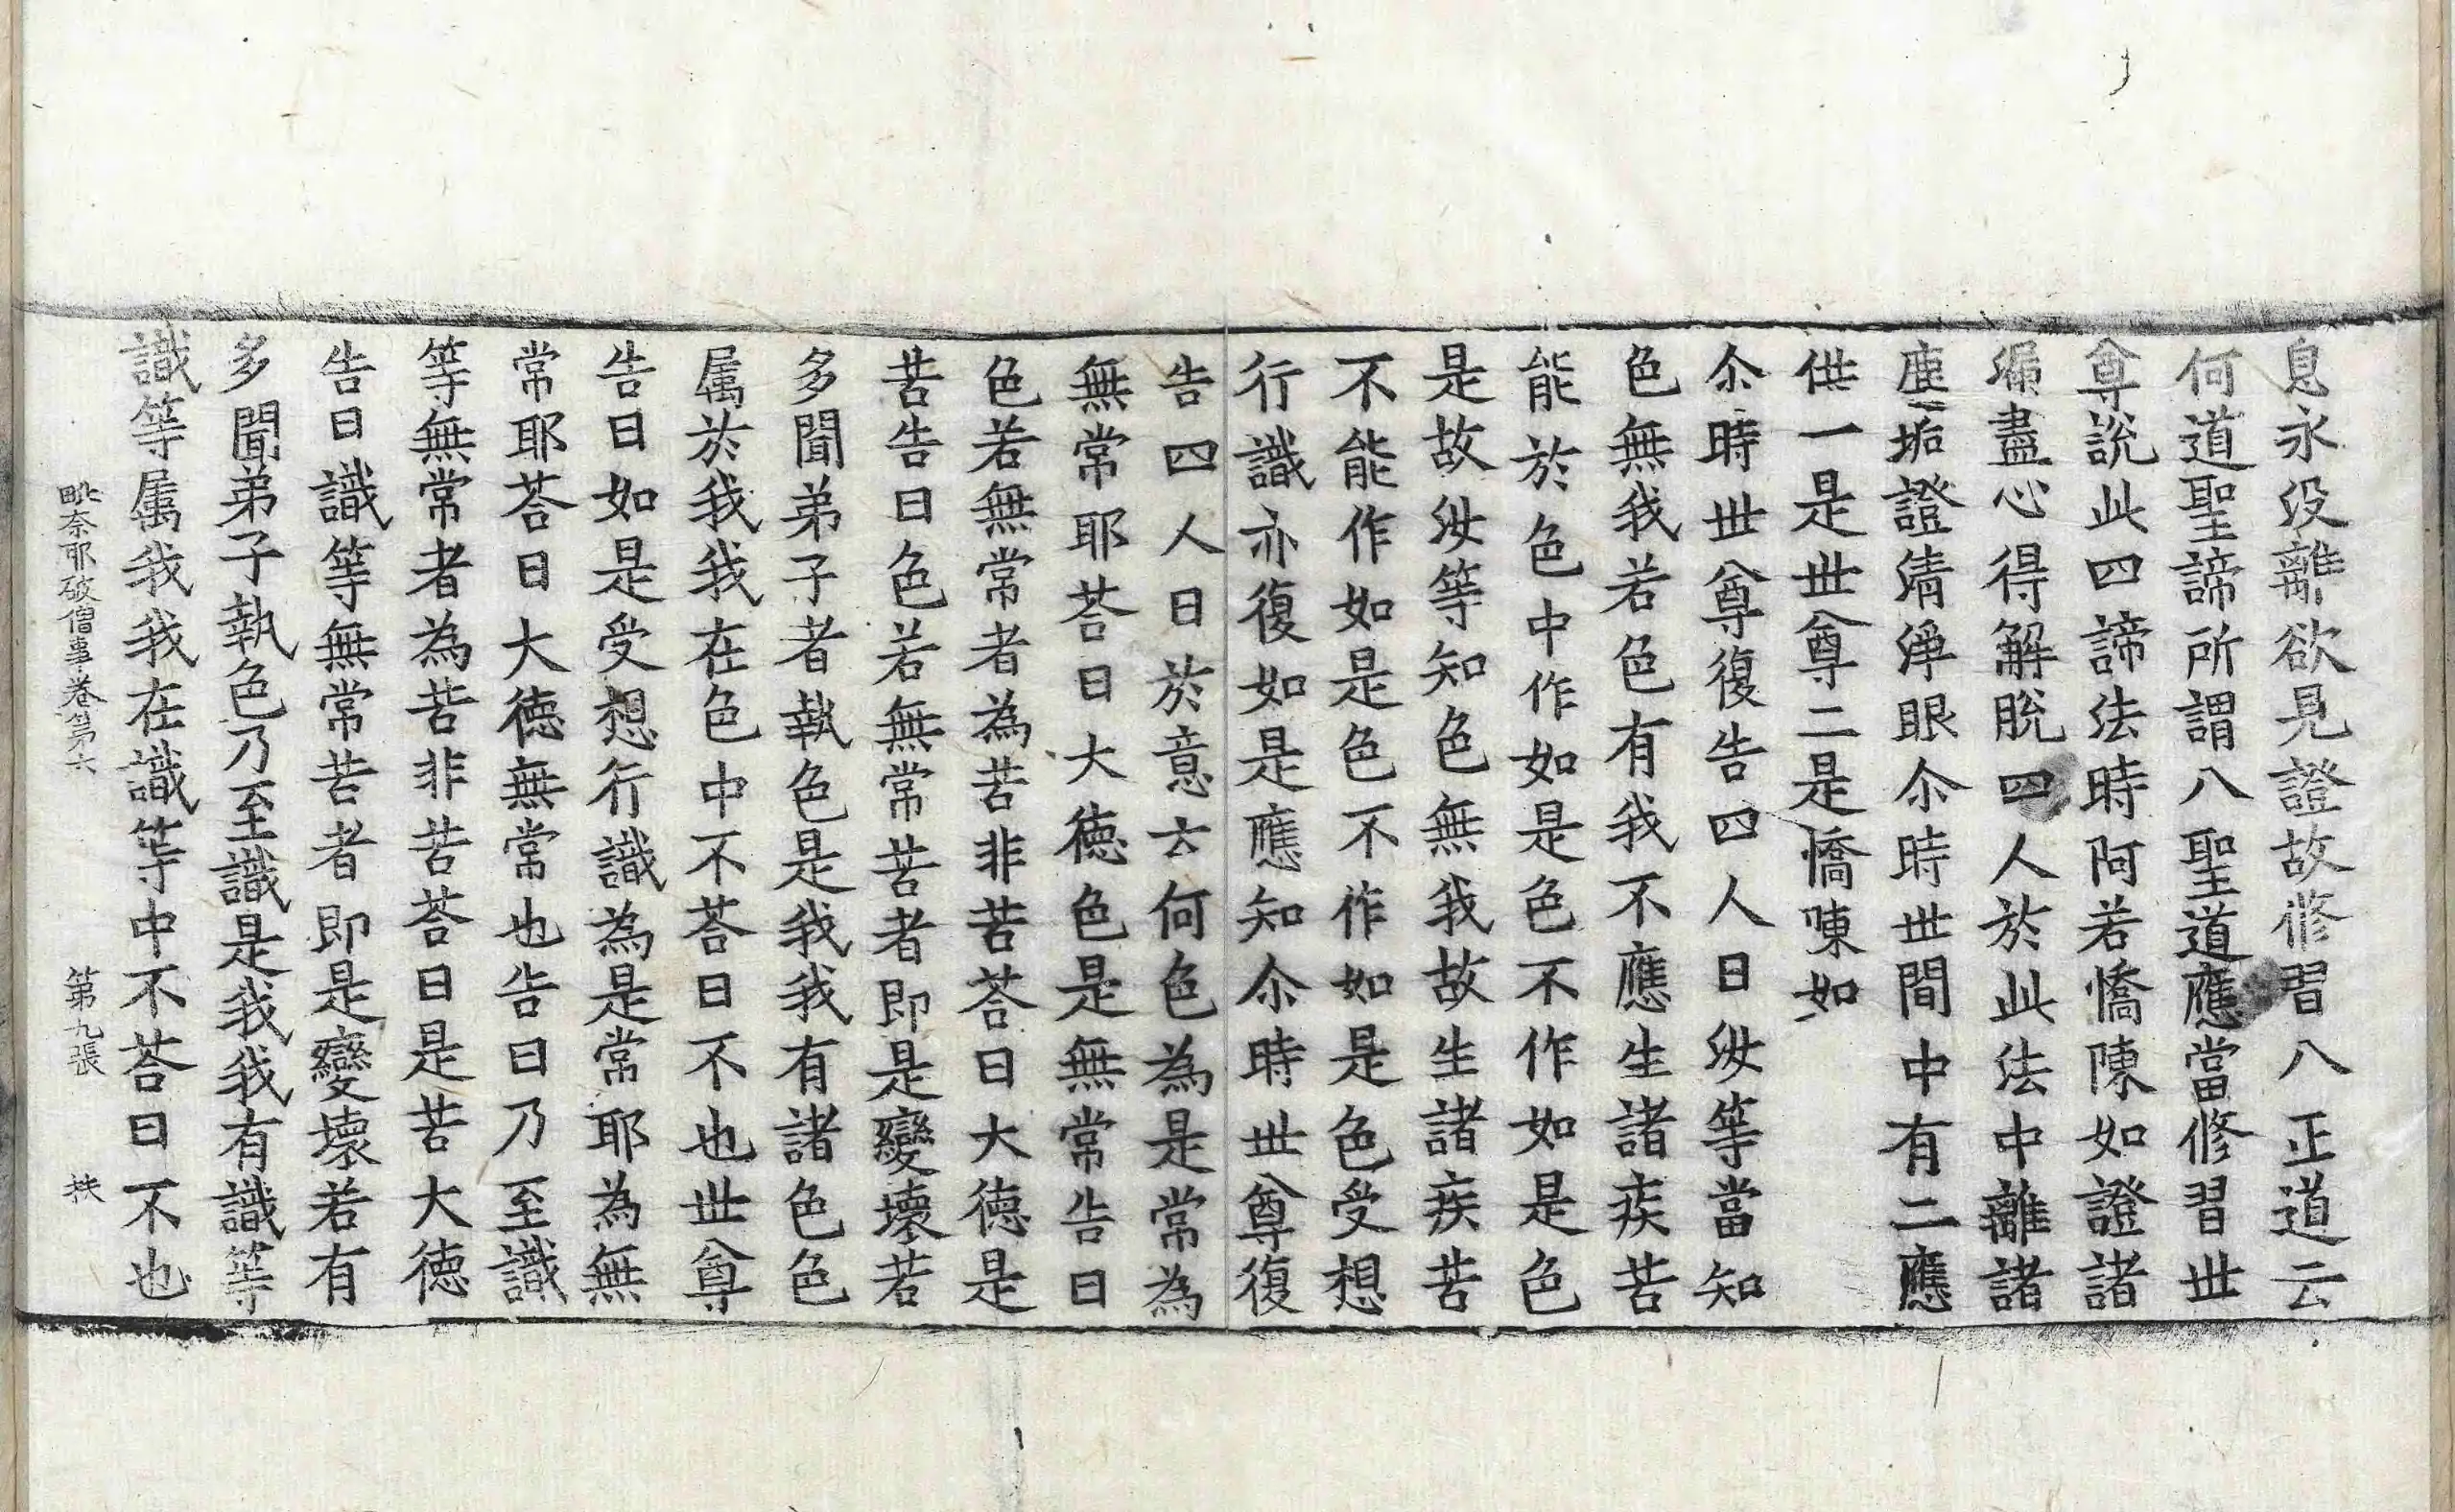 息永没離欲見證故修習八正道云
何道聖諦所謂八聖道應當修習世
尊說此四諦法時阿若憍陳如證諸
漏盡心得解脫四人於此法中離諸
塵垢證清淨眼尒時世間中有二應
供一是世尊二是憍陳如
尒時世尊復告四人曰汝等當知
色無我若色有我不應生諸疾苦
能於色中作如是色不作如是色
是故汝等知色無我故生諸疾苦
不能作如是色不作如是色受想
行識亦復如是應知尒時世尊復
告四人曰於意云何色為是常為
無常耶荅曰大德色是無常告曰
色若無常者為苦非苦荅曰大德是
苦告曰色若無常苦者即是變壞若
多聞弟子者執色是我我有諸色色
属於我我在色中不荅曰不也世尊
告曰如是受想行識為是常耶為無
常耶荅曰大德無常也告曰乃至識
等無常者為苦非苦荅曰是苦大德
告曰識等無常苦者即是變壞若有
多聞弟子執色乃至識是我我有識等
識等属我我在識等中不荅曰不也
毗奈耶破僧事卷第六 第九張 扶